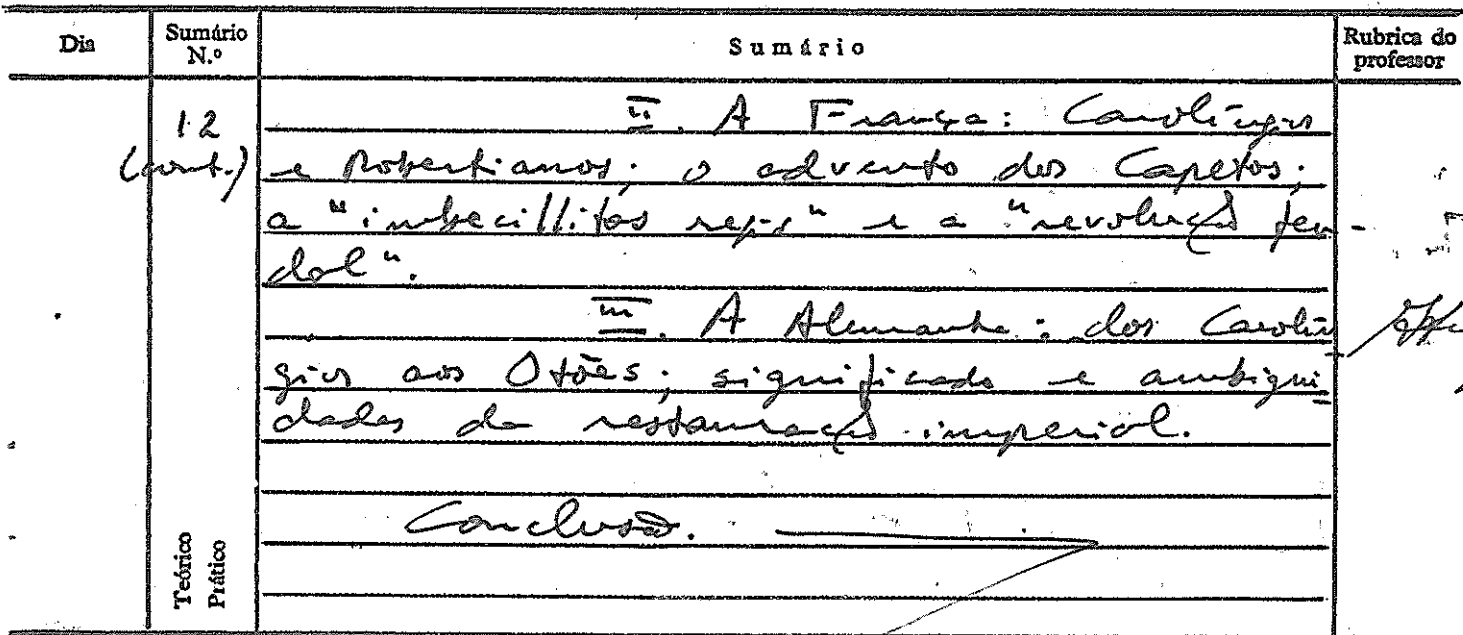 Dia
Sumário N.º
Sumário
Rubrica do professor
12
(cont.)
II. A França: Carolíngios
e Robertianos; o advento dos Capetos;
a "imbecillitas regis" e a "revolução feu-
dal".
III. A Alemanha: dos Carolín
gios aos Otões; significado e ambigui-
dades da restauração imperial.
Conclusão.
Teórico
Prático